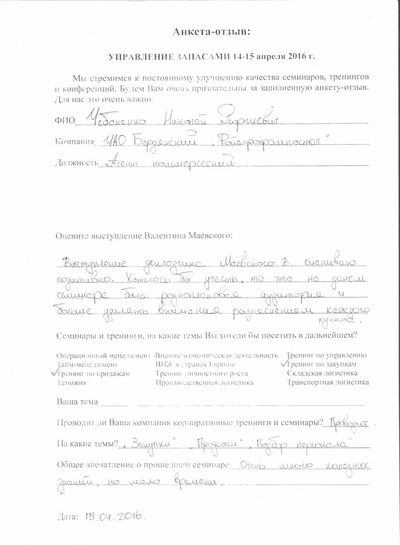 Анкета-отзыв:
УПРАВЛЕНИЕ ЗАПАСАМИ 14-15 апреля 2016 г.
Мы стремимся к постоянному улучшению качества семинаров, тренингов
и конференций. Будем Вам очень признательны за заполненную анкету-отзыв.
Для нас это очень важно.
ФИО Николай
Компания ЧАО Бердянский "Райагропромпостач"
Должность Агент коммерческий
Оцените выступление Валентина Маевского:
Выступление докладчика Маевского В. оцениваю
позитивно. Хотелось бы учесть, то что на данном
семинаре была разноплановая аудитория и
больше уделять внимания разъяснением каждого
пункта.
Семинары и тренинги, на какие темы Вы хотели бы посетить в дальнейшем?
Операционный менеджмент Внешнеэкономическая деятельность Тренинг по управлению
Тайм-менеджмент ВПЭК в странах Европы ✓Тренинг по закупкам
✓Тренинг по продажам Тренинг личностного роста Складская логистика
Таможня Производственная логистика Транспортная логистика
Ваша тема
Проводит ли Ваша компания корпоративные тренинги и семинары? Проводит
На какие темы? "Закупки" "Продажи", "Подбор персонала"
Общее впечатление о прошедшем семинаре Очень много полезных
знаний, но мало времени.
Дата: 15.04.2016.